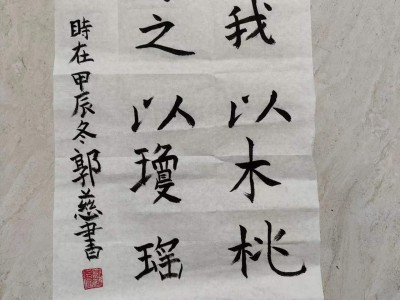 我以木桃
之以瓊瑶
時在甲辰冬郭慈書